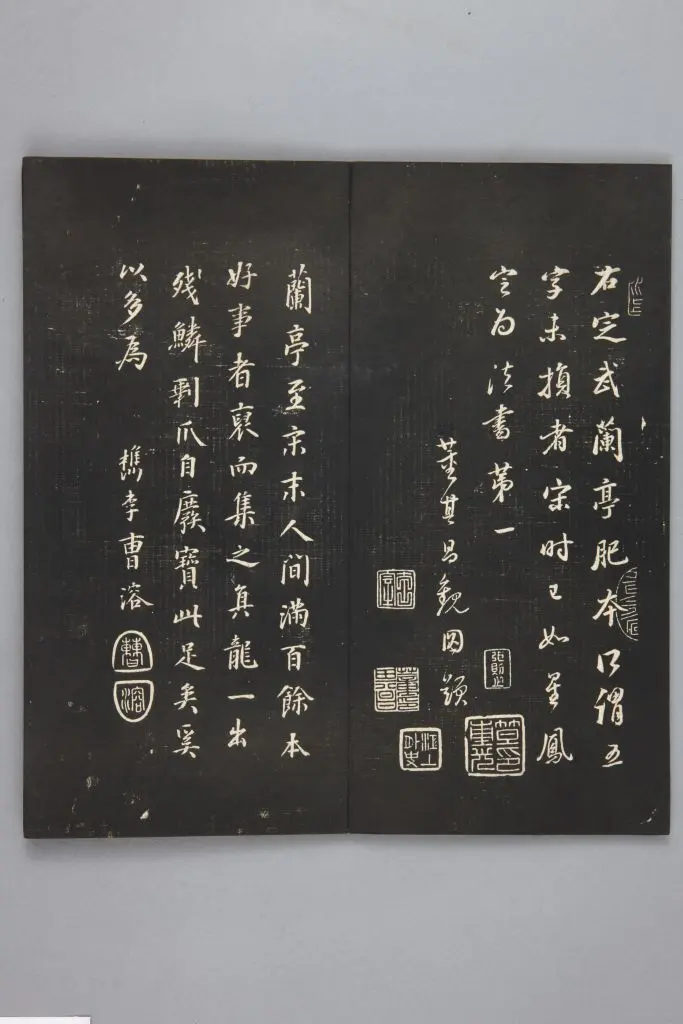 右定武蘭亭肥本所謂五
字未損者宋時已如星鳳
定為法書第一
董其昌觀因題
蘭亭至宋末人間滿百餘本
好事者裒而集之真龍一出
殘鱗剩爪自廢寶此足矣奚
以多為
檇李曹溶
曹
溶
江上
外史